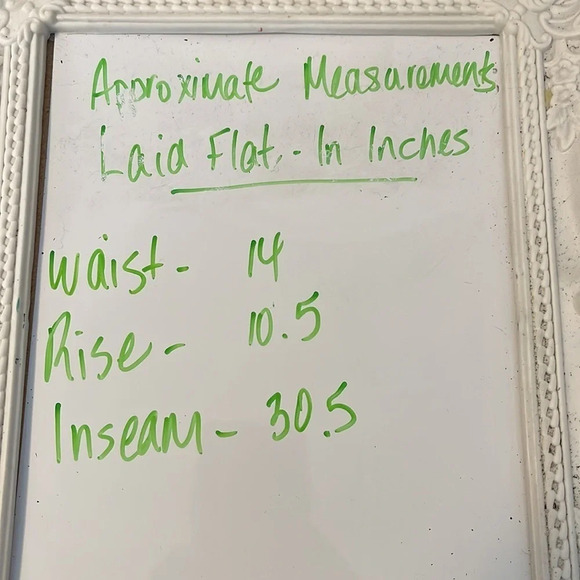 Approximate Measurements
Laid Flat - In Inches
Waist - 14
Rise - 10.5
Inseam - 30.5